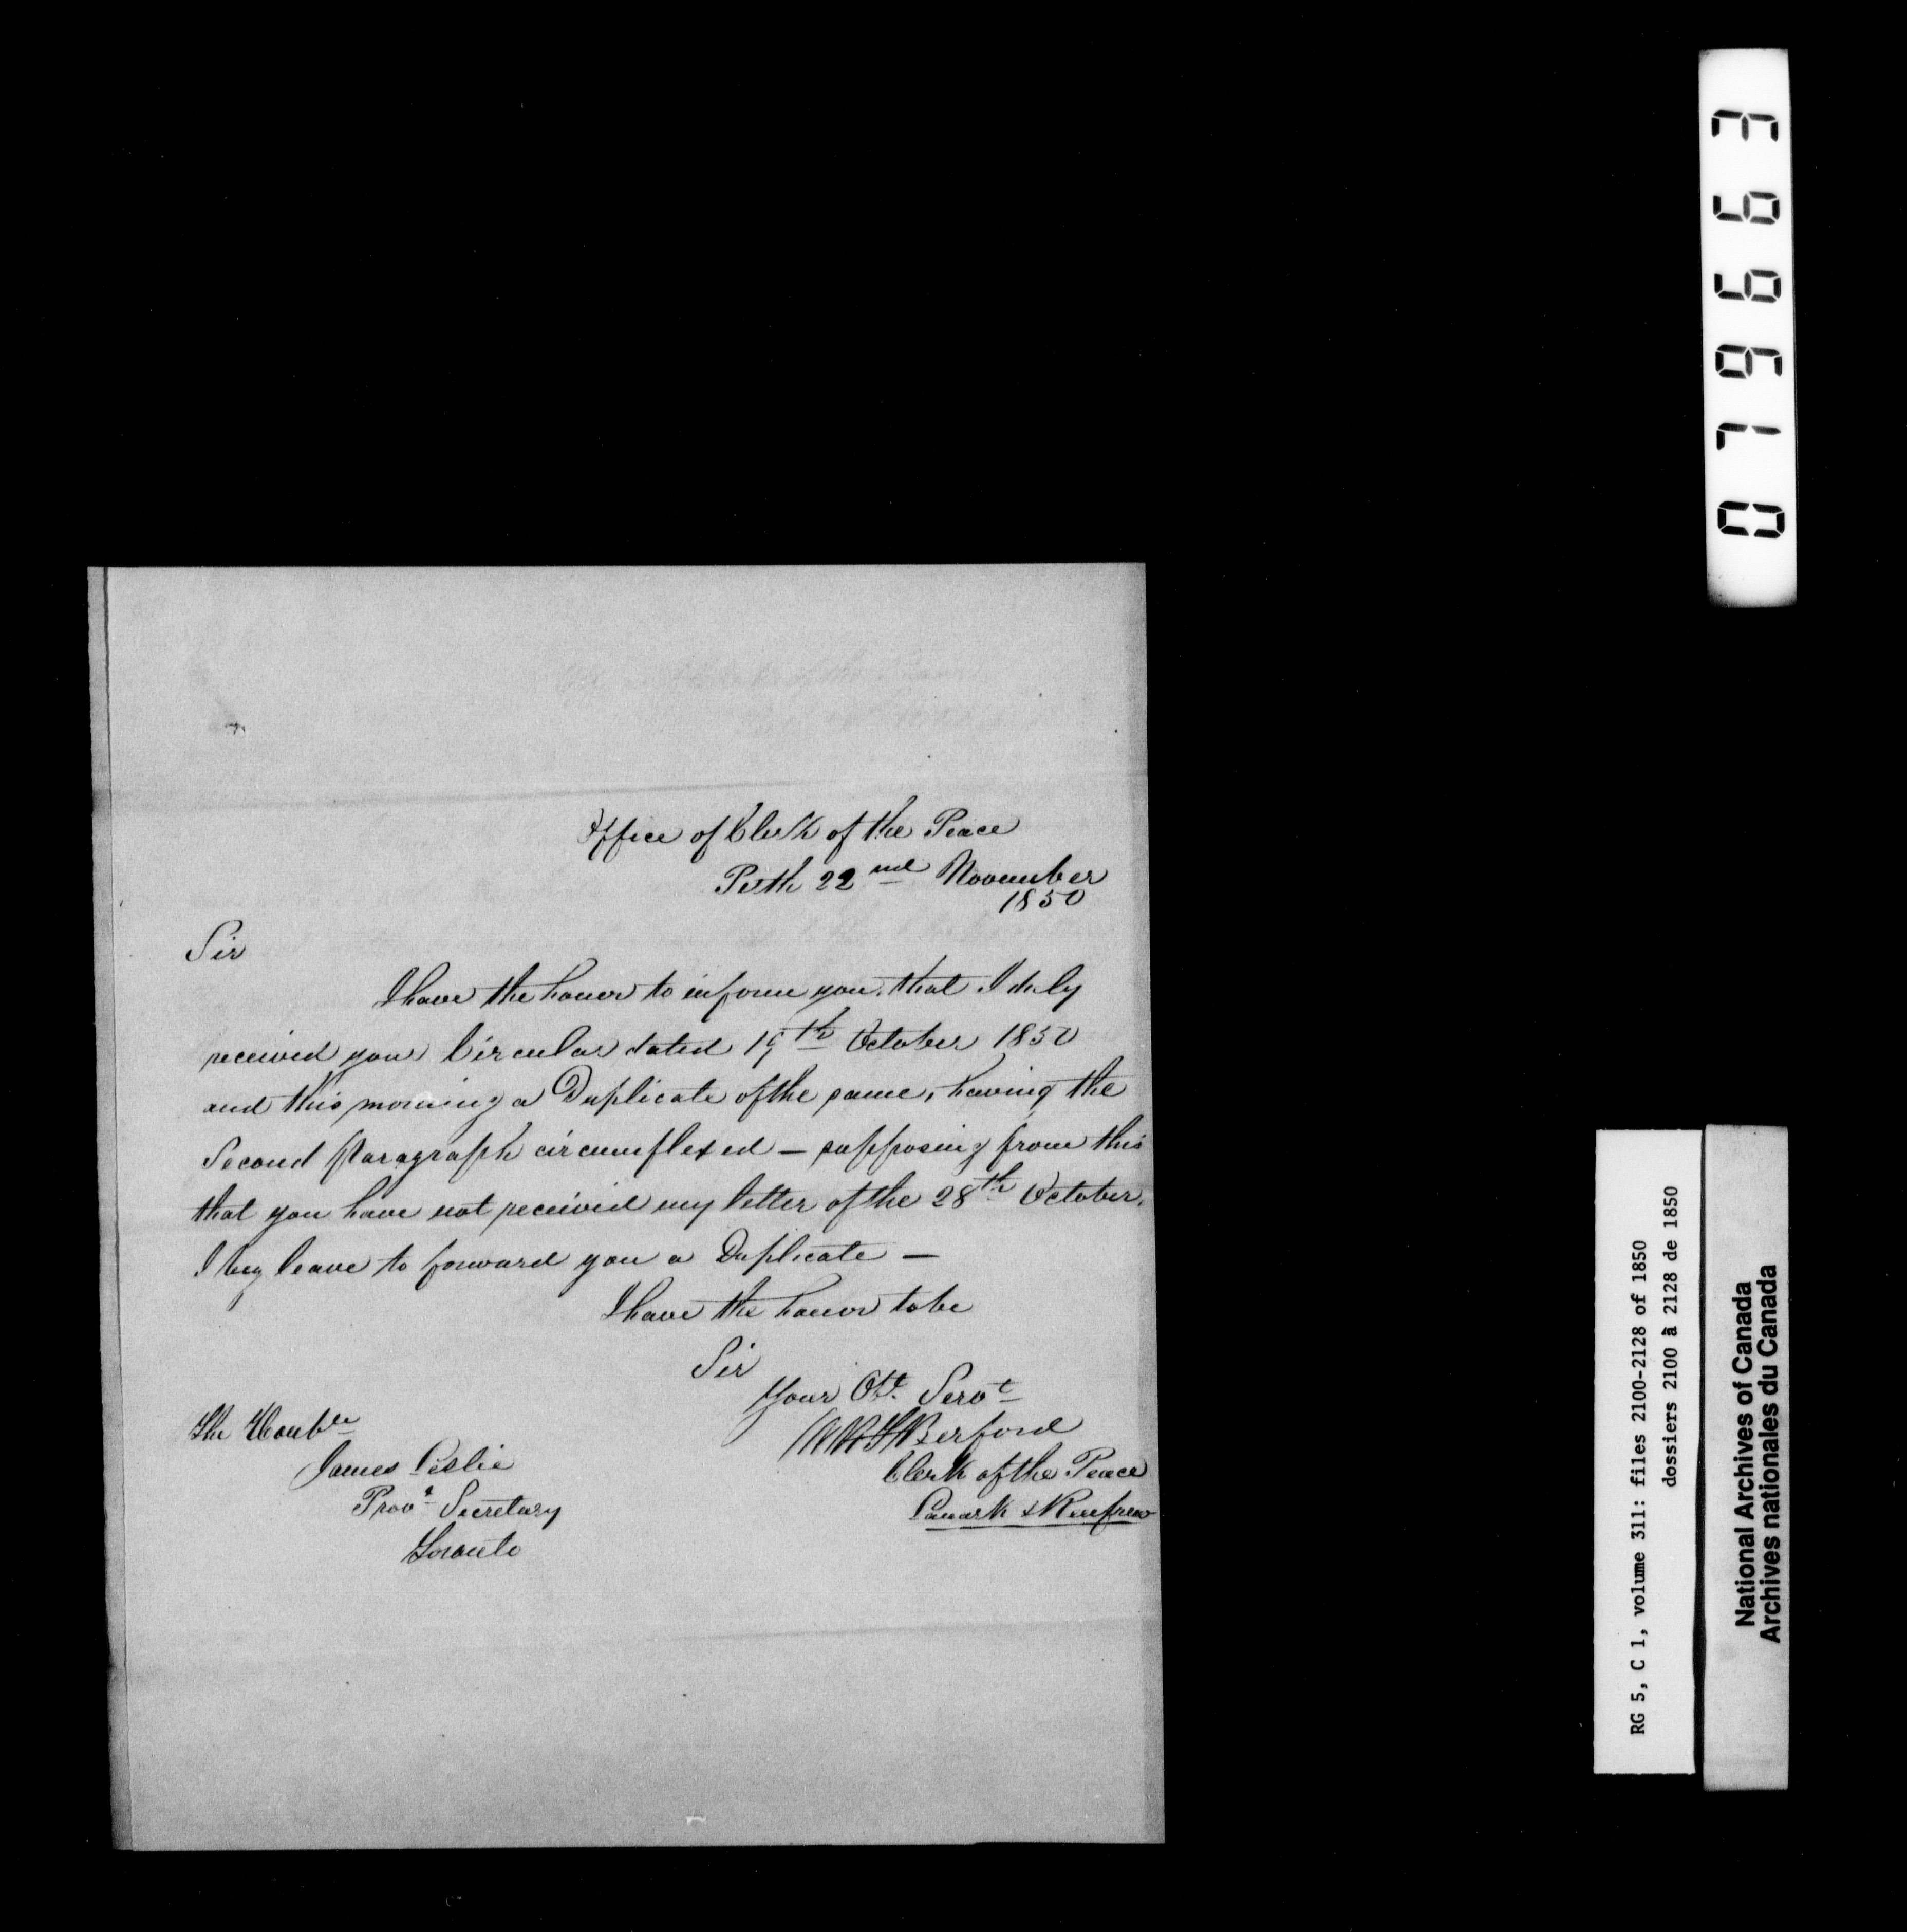 Office of Clerk of the Peace
Perth 22nd November
1850
Sir
I have the honor to inform you, that I duly
received your Circular dated 19th October 1850
and this morning a Duplicate of the same, having the
Second Paragraph circumflexed — supposing from this
that you have not received my letter of the 28th October,
I beg leave to forward you a Duplicate —
I have the honor to be
Sir
Your Obt. Servt
Berford
Clerk of the Peace
Lanark & Renfrew
The Honble
James Leslie
Provl Secretary
Toronto
079663
RG 5, C 1, volume 311: files 2100-2128 of 1850
dossiers 2100 à 2128 de 1850
National Archives of Canada
Archives nationales du Canada